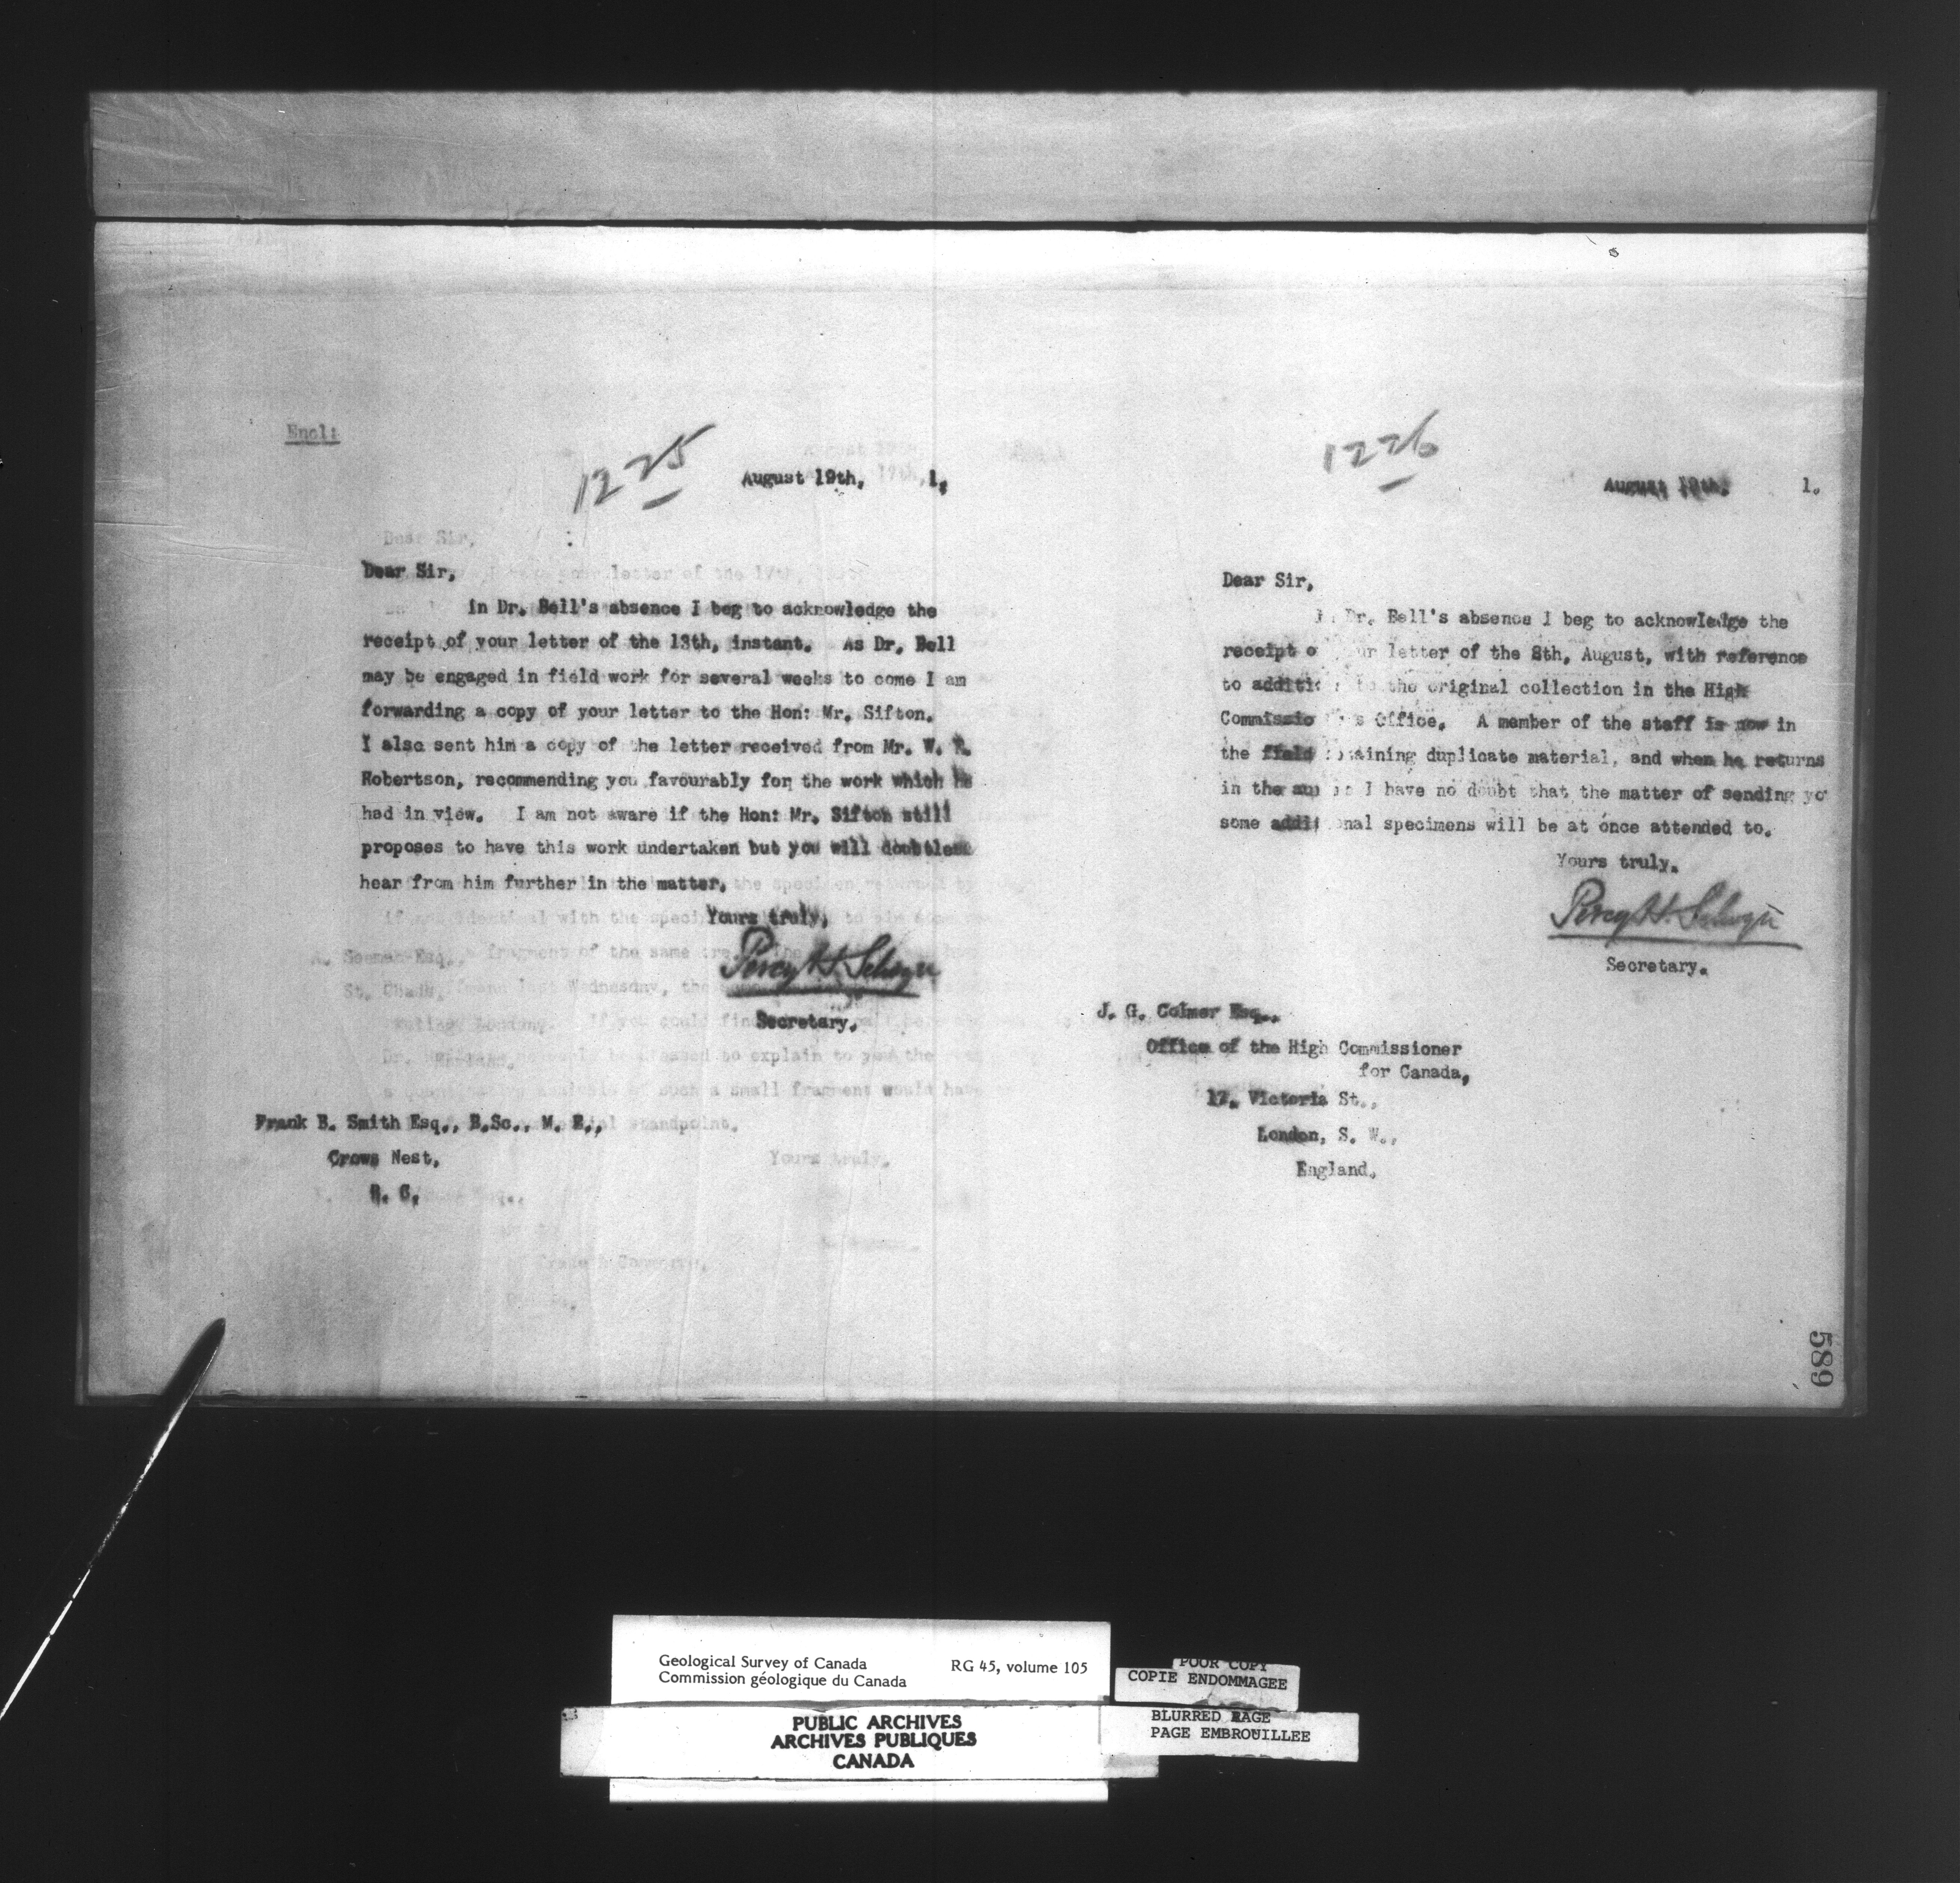 Encl:
1225
August 19th, 1,
Dear Sir,
in Dr. Bell's absence I beg to acknowledge the
receipt of your letter of the 13th, instant. As Dr. Bell
may be engaged in field work for several weeks to come I am
forwarding a copy of your letter to the Hon: Mr. Sifton.
I also sent him a copy of the letter received from Mr. W. F.
Robertson, recommending you favourably for the work which he
had in view. I am not aware if the Hon: Mr. Sifton still
proposes to have this work undertaken but you will doubtless
hear from him further in the matter.
Yours truly,
Percy H. Selwyn
Secretary.
Frank B. Smith Esq., B.Sc., M. E.,
Crows Nest,
B. C.
1226
August 19th, 1.
Dear Sir,
Dr. Bell's absence I beg to acknowledge the
receipt o ur letter of the 8th, August, with reference
to additi the original collection in the High
Commissio s Office. A member of the staff is now in
the field taining duplicate material, and when he returns
in the I have no doubt that the matter of sending yo
some addi onal specimens will be at once attended to.
Yours truly.
Percy H. Selwyn
Secretary.
J. G. Colmer Esq.,
Office of the High Commissioner
for Canada,
17, Victoria St.,
London, S. W.,
England.
589
Geological Survey of Canada RG 45, volume 105
Commission géologique du Canada
PUBLIC ARCHIVES
ARCHIVES PUBLIQUES
CANADA
POOR COPY
COPIE ENDOMMAGEE
BLURRED PAGE
PAGE EMBROUILLEE